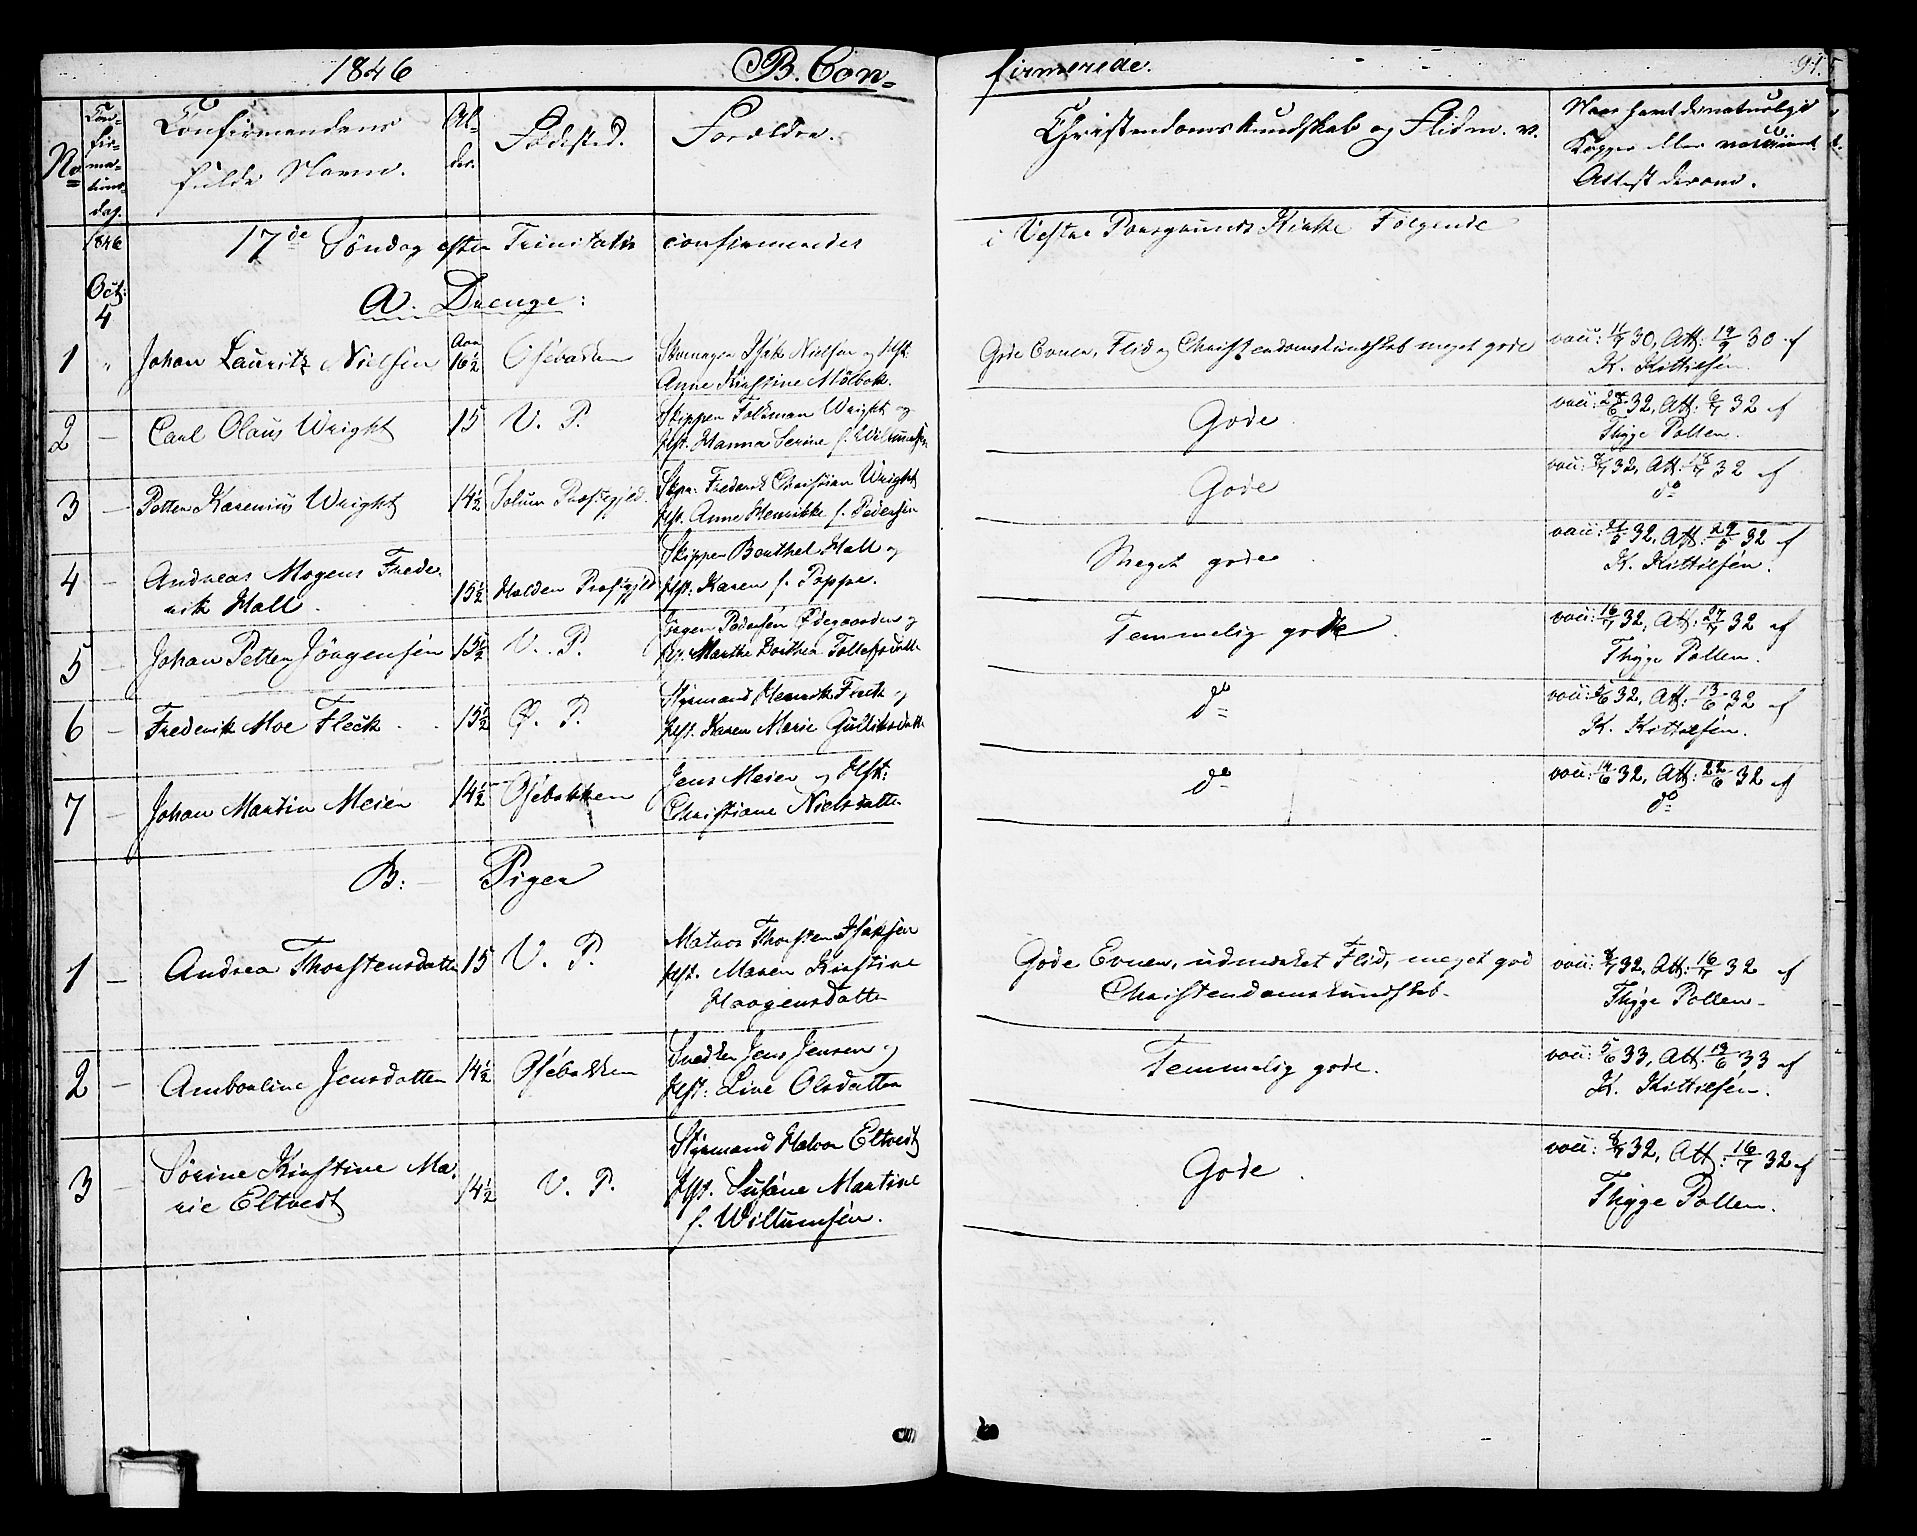 1846 B. Con-
firmerede.
No
Con-
fir-
ma-
tions-
dag.
Confirmandens
fulde Navn.
Al-
der.
Fødested.
Forældre.
Christendomskundskab og Flid m. v.
Naar havt de naturlige
Kopper eller vaccineret
Attest derom.
1846
17de Søndag efter Trinitatis confirmeredes
i Vestre Porsgrunds Kirke Følgende
Oct:
4
A. Drenge:
1 " Johan Lauritz Nielsen Aar 16½ Osebakken
Skomager Isak Nielsen og Hst:
Anne Kirstine Mölbak.
Gode Evner, Flid og Christendomskundskab meget gode
vacc: 11/7 30, Att: 19/9 30 af
K. Kittilsen.
2 — Carl Olaus Wright 15 V. P.
Skipper Folkman Wright og
Hst. Hanna Serine f. Willumsen
Gode
vacc: 28/6 32, Att: 6/7 32 af
Thyge Pollen.
3 — Petter Kasenius Wright 14½ Solum Præstegjeld.
Skpr: Frederik Christian Wright
Hst. Anne Henrikke f. Pedersen
Gode
vacc: 8/7 32, Att: 18/7 32 af
do
4 — Andreas Mogens Frede-
rik Hall 15½ Holden Præstegjeld
Skipper Barthel Hall og
Hst: Karen f. Poppe.
Meget gode
vacc: 21/5 32, Att: 29/5 32 af
K. Kittilsen.
5 — Johan Petter Jörgensen 15½ V. P.
Jörgen Pedersen Ødegaarden og
Hst. Marthe Dorthea Tollefsdatter
Temmelig gode
vacc: 16/7 32, Att: 27/7 32 af
Thyge Pollen.
6 — Frederik Moe Fleck 15½ Ø. P.
Styrmand Henrik Fleck og
Hst. Karen Marie Gulliksdatter
do
vacc: 5/6 32, Att: 13/6 32 af
K. Kittilsen.
7 — Johan Martin Meier 14½ Osebakken
Jens Meier og Hst:
Christiane Nielsdatter
do
vacc: 14/6 32, Att: 22/6 32 af
do
B: Piger
1 — Andrea Thorstensdatter 15 V. P.
Matros Thorsten Isaksen
Hst. Maren Kirstine
Haagensdatter
Gode Evner, udmærket Flid, meget god
Christendomskundskab.
vacc: 8/7 32, Att: 16/7 32 af
Thyge Pollen
2 — Amborline Jensdatter 14½ Osebakken
Snedker Jens Jensen og
Hst: Live Olsdatter
Temmelig gode.
vacc: 5/6 33, Att: 13/6 33 af
K. Kittilsen.
3 — Sörine Kirstine Ma-
rie Eltvedt 14½ V. P.
Styrmand Halvor Eltvedt
Hst. Susane Martine
f. Willumsen.
Gode
vacc: 8/7 32, Att: 16/7 32 af
Thyge Pollen.